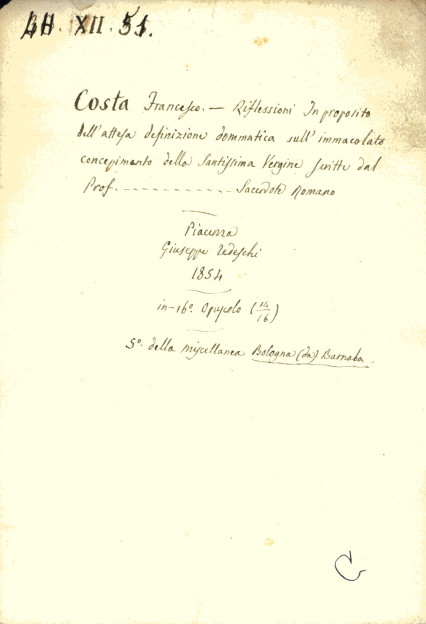 LH. XII. 51.
Costa Francesco. — Riflessioni In proposito
dell'attesa definizione dommatica sull'immacolato
concepimento della Santissima Vergine scritte dal
Prof. - - - - - - - - - - - Sacerdote Romano
Piacenza
Giuseppe Tedeschi
1854
in-16º. Opuscolo (14/16)
5º. della miscellanea Bologna (da) Barnaba.
C